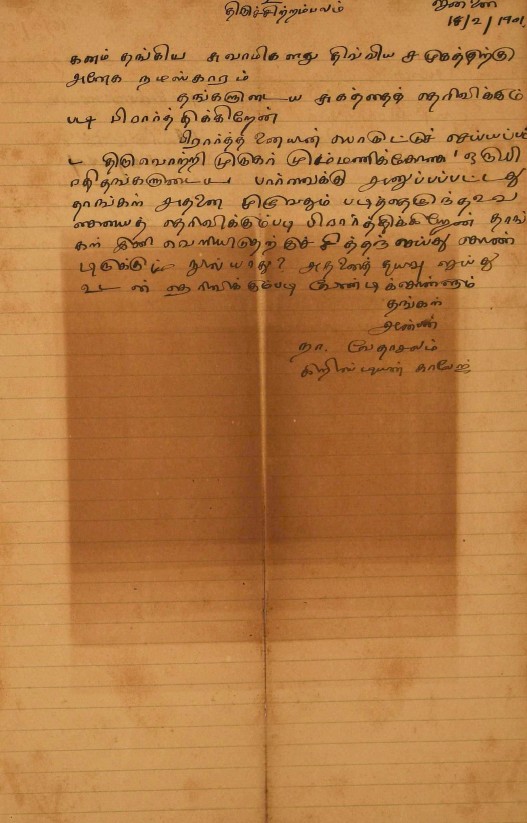 திருச்சிற்றம்பலம்
சென்னை
18/2/1901
கனம் தங்கிய சுவாமிகளது திவ்விய சமுகத்திற்கு
அனேக நமஸ்காரம்
தங்களுடைய சுகத்தைத் தெரிவிக்கும்
படி பிரார்த்திக்கிறேன்
பிரார்த்தனையுடன் செய்யப்பட்
ட திருவொற்றி முருகர் மும்மணிக்கோவை ஒரு பி
ரதி தங்களுடைய பார்வைக்கு அனுப்பப்பட்டது
தாங்கள் அதனை முழுவதும் படித்து
தெரிவிக்கும்படி பிரார்த்திக்கிறேன் தாங்
கள் இனி வெளியிடுதற்குச் சித்தஞ் செய்து கொண்
டிருக்கும் நூல் யாது? அதனைத் தயவு செய்து
உடன் தெரிவிக்கும்படி வேண்டிக்கொள்ளும்
தங்கள்
அன்பன்
நா. வேதாசலம்
கிறிஸ்டியன் காலேஜ்